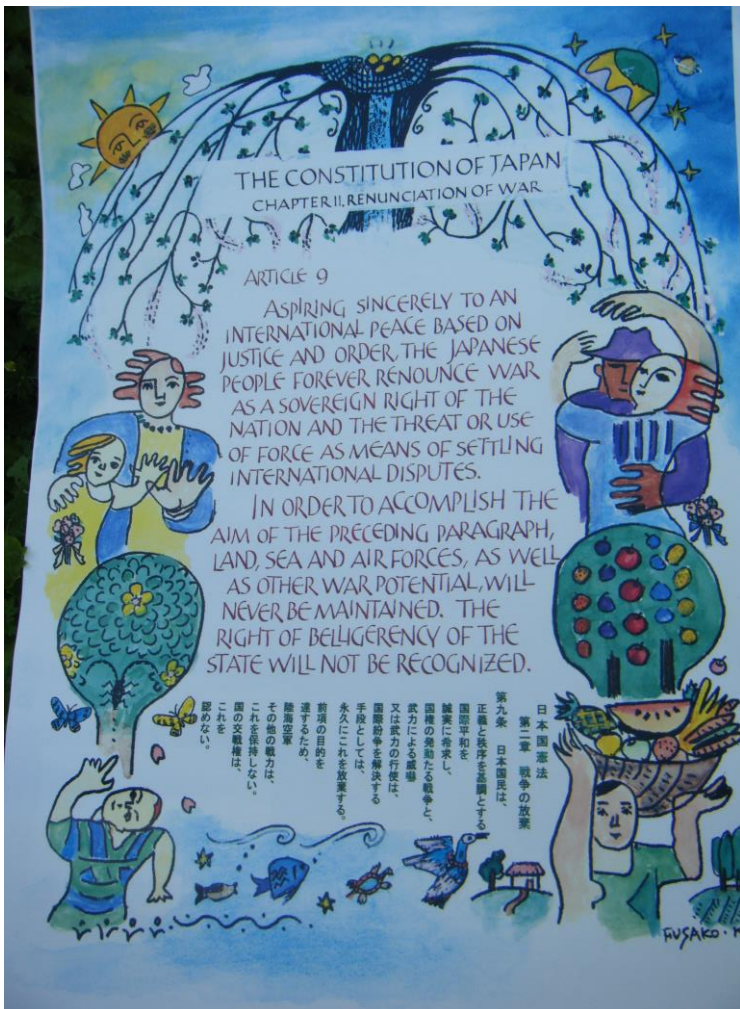 THE CONSTITUTION OF JAPAN
CHAPTER II. RENUNCIATION OF WAR
ARTICLE 9
ASPIRING SINCERELY TO AN
INTERNATIONAL PEACE BASED ON
JUSTICE AND ORDER, THE JAPANESE
PEOPLE FOREVER RENOUNCE WAR
AS A SOVEREIGN RIGHT OF THE
NATION AND THE THREAT OR USE
OF FORCE AS MEANS OF SETTLING
INTERNATIONAL DISPUTES.
IN ORDER TO ACCOMPLISH THE
AIM OF THE PRECEDING PARAGRAPH,
LAND, SEA AND AIR FORCES, AS WELL
AS OTHER WAR POTENTIAL, WILL
NEVER BE MAINTAINED. THE
RIGHT OF BELLIGERENCY OF THE
STATE WILL NOT BE RECOGNIZED.
日本国憲法
第二章 戦争の放棄
第九条 日本国民は、
正義と秩序を基調とする
国際平和を
誠実に希求し、
国権の発動たる戦争と、
武力による威嚇
又は武力の行使は、
国際紛争を解決する
手段としては、
永久にこれを放棄する。
前項の目的を
達するため、
陸海空軍
その他の戦力は、
これを保持しない。
国の交戦権は、
これを
認めない。
FUSAKO